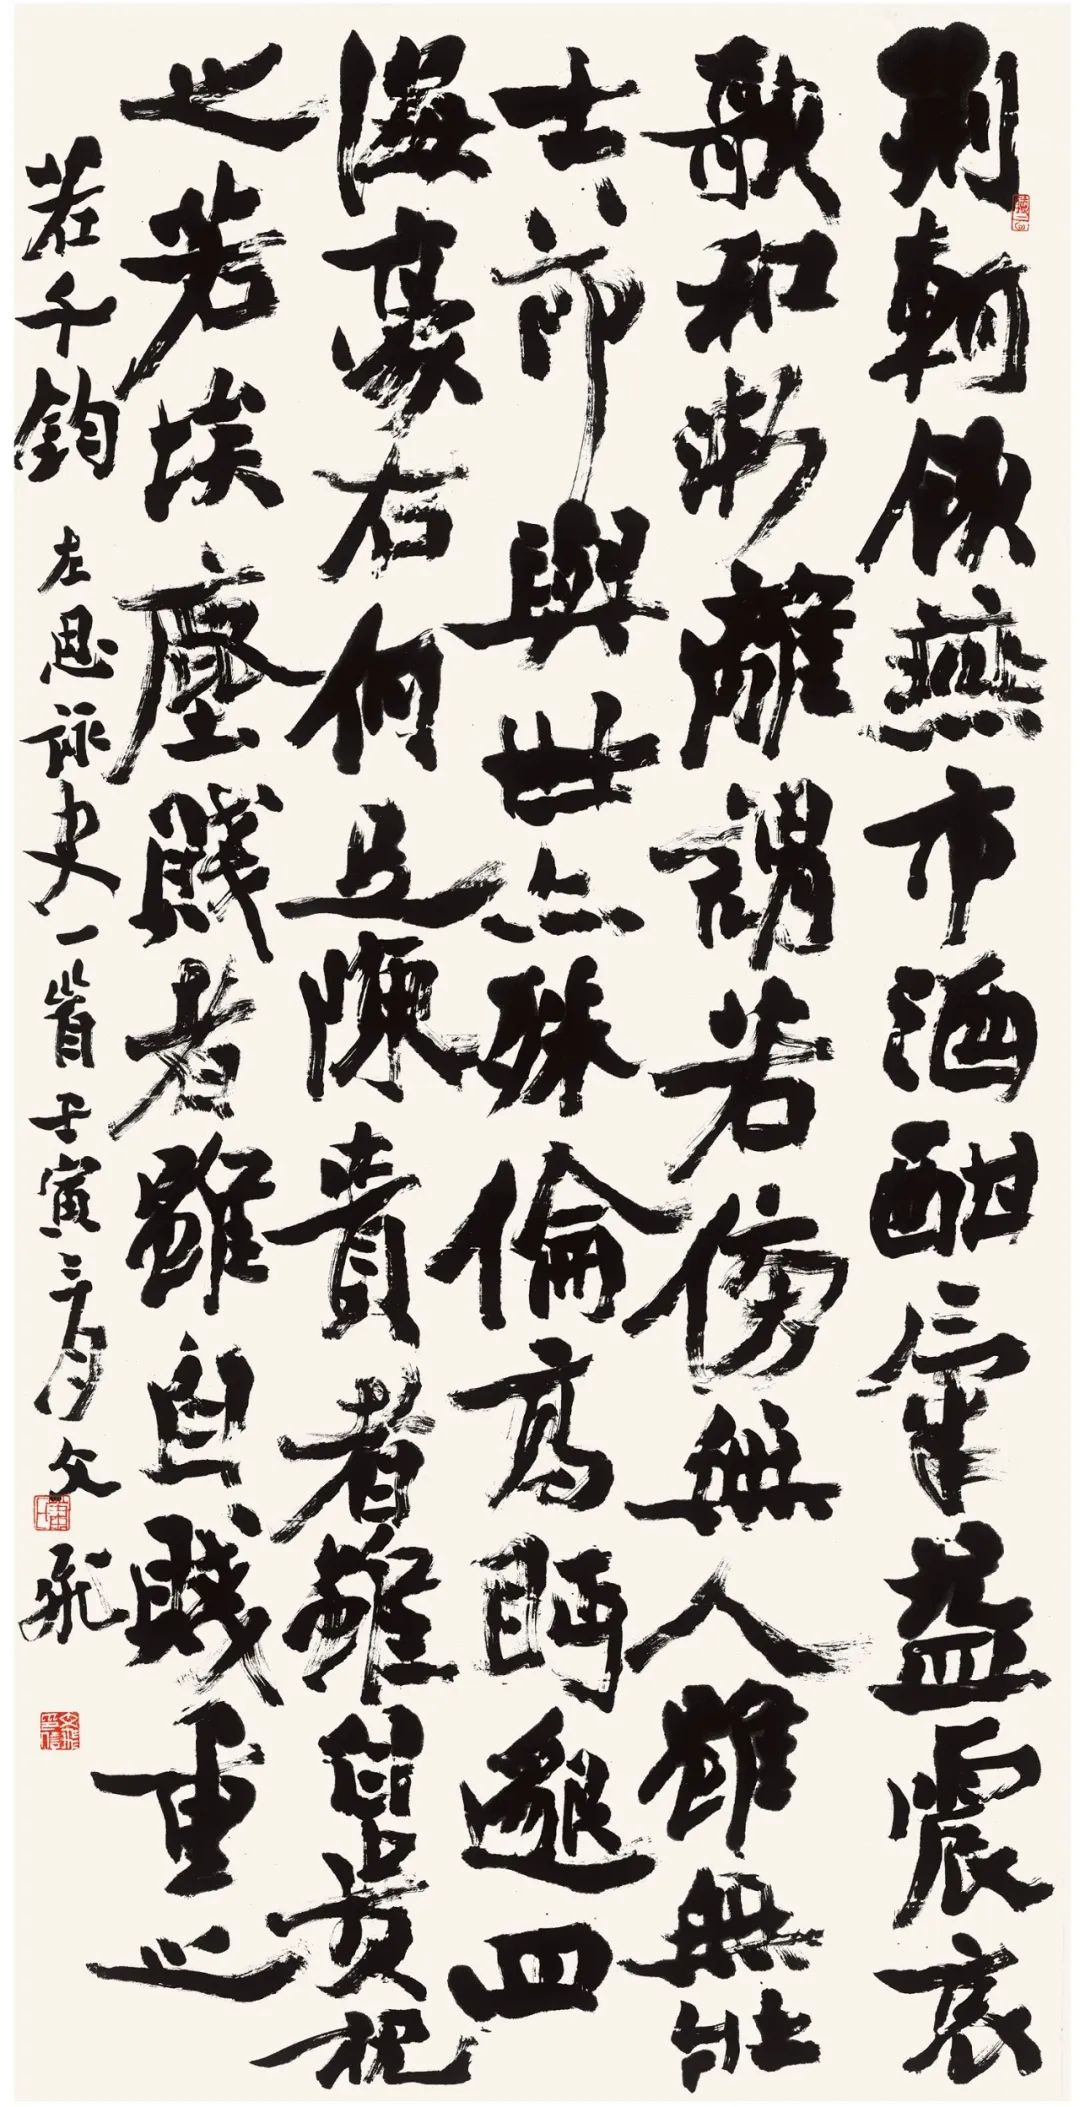 荆軻飲燕市酒酣氣益震哀
歌和漸離謂若傍無人雖無壯
士節與世亦殊倫高眄邈四
海豪右何足陳貴者雖自貴視
之若埃塵賤者雖自賤重之
若千鈞 左思詠史一首 壬寅三月 文飛